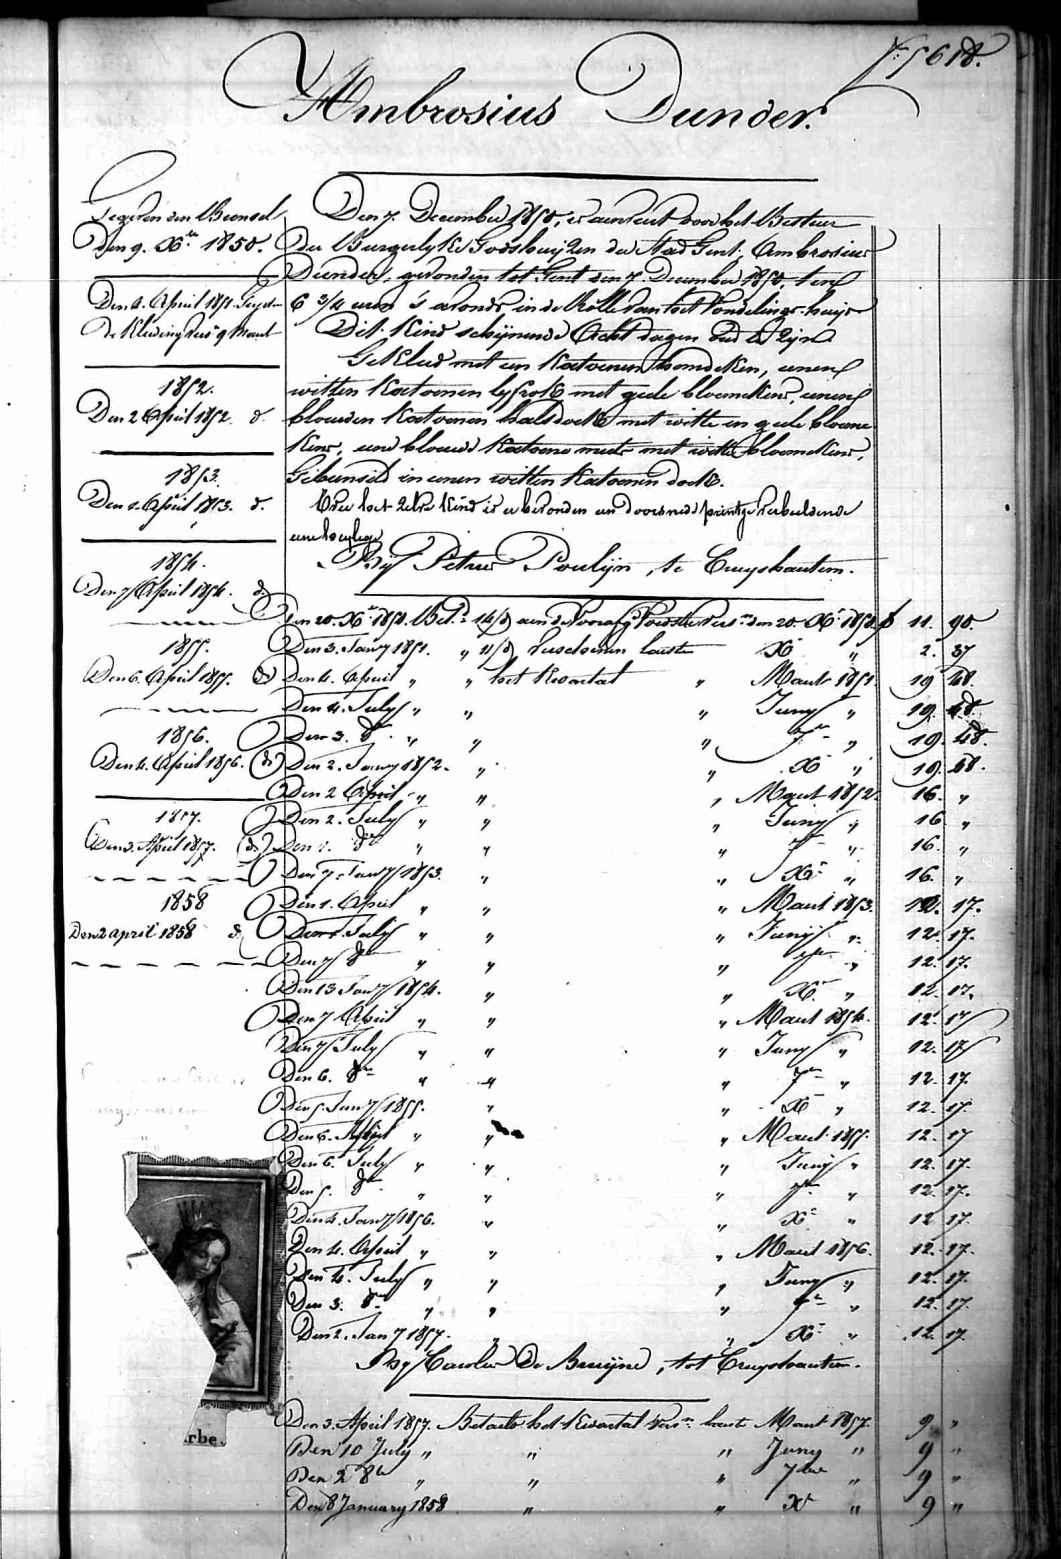 Nº 5618.
Ambrosius Dunder.
Den 7. December 1850, is aenveird door het Bestuer
der Burgerlyke Godshuyzen der Stad Gent, Ambrosius
Dunder, gevonden tot Gent den 7. December 1850, ten
6 3/4 uren 's avonds, in de Rolle van het Vondelings-huijs
Dit Kind schijnende Acht dagen oud te zijn
Gekleed met een Katoenen hemdeken, eenen
witten Katoenen lyfrok met geele bloemekens, eenen
blouwen Katoenen halsdoek met witte en geele bloeme
kens, eene blouwe Katoene muts met witte bloemekens,
Gebunseld in eenen witten Katoenen doek.
Over het zelve Kind is er bevonden een doorsnede printje verbeeldende
eene heylige
Bij Petrus Poulijn, te Cruyshautem.
Den 9. Xber 1850.
Den 4. April 1851.
1852.
Den 2 April 1852. d.
1853.
Den 1. April 1853. d.
1854.
Den 7 April 1854. d.
1855.
Den 6. April 1855. d.
1856.
Den 4. April 1856. d.
1857.
Den 3. April 1857. d.
1858
Den 2 april 1858 d.
Den 20. Xber 1850. den 20. Xber 1850. f 11. 90.
Den 3. Janry 1851. " " X " 2. 37
Den 4. April " " het Kwartal " Maart 1851. 19 48.
Den 4. July " " " Juny " 19. 48.
Den 3. 8er " " " 7er " 19. 48.
Den 2. Janry 1852. " " Xr " 19. 48.
Den 2 April " " " Maart 1852. 16. "
Den 2. July " " " Juny " 16. "
Den 1. 8er " " " 7er " 16. "
Den 7. Janry 1853. " " Xr " 16. "
Den 1. April " " " Maart 1853. 12. 17.
Den 1. July " " " Juny " 12. 17.
Den 7 8er " " " 7er " 12. 17.
Den 13 Janry 1854. " " Xr " 12. 17.
Den 7 April " " " Maart 1854. 12. 17
Den 7 July " " " Juny " 12. 17
Den 6. 8er " " " 7er " 12. 17.
Den 5. Janry 1855. " " Xr " 12. 17.
Den 6. April " " " Maart 1855. 12. 17
Den 6. July " " " Juny " 12. 17.
Den 5. 8er " " " 7er " 12. 17.
Den 4. Janry 1856. " " Xr " 12 17.
Den 4. April " " " Maart 1856. 12. 17.
Den 4. July " " " Juny " 12. 17.
Den 3. 8er " " " 7er " 12. 17.
Den 2. Janry 1857. " " Xr " 12. 17.
Bij Carolus De Bruijne, tot Cruyshautem.
rbe.
Den 3. April 1857. Betaelt het Kwartal Maart 1857. 9 "
Den 10 July " " " Juny " 9 "
Den 2 8er " " " 7ber " 9 "
Den 8 January 1858 " " Xr " 9 "